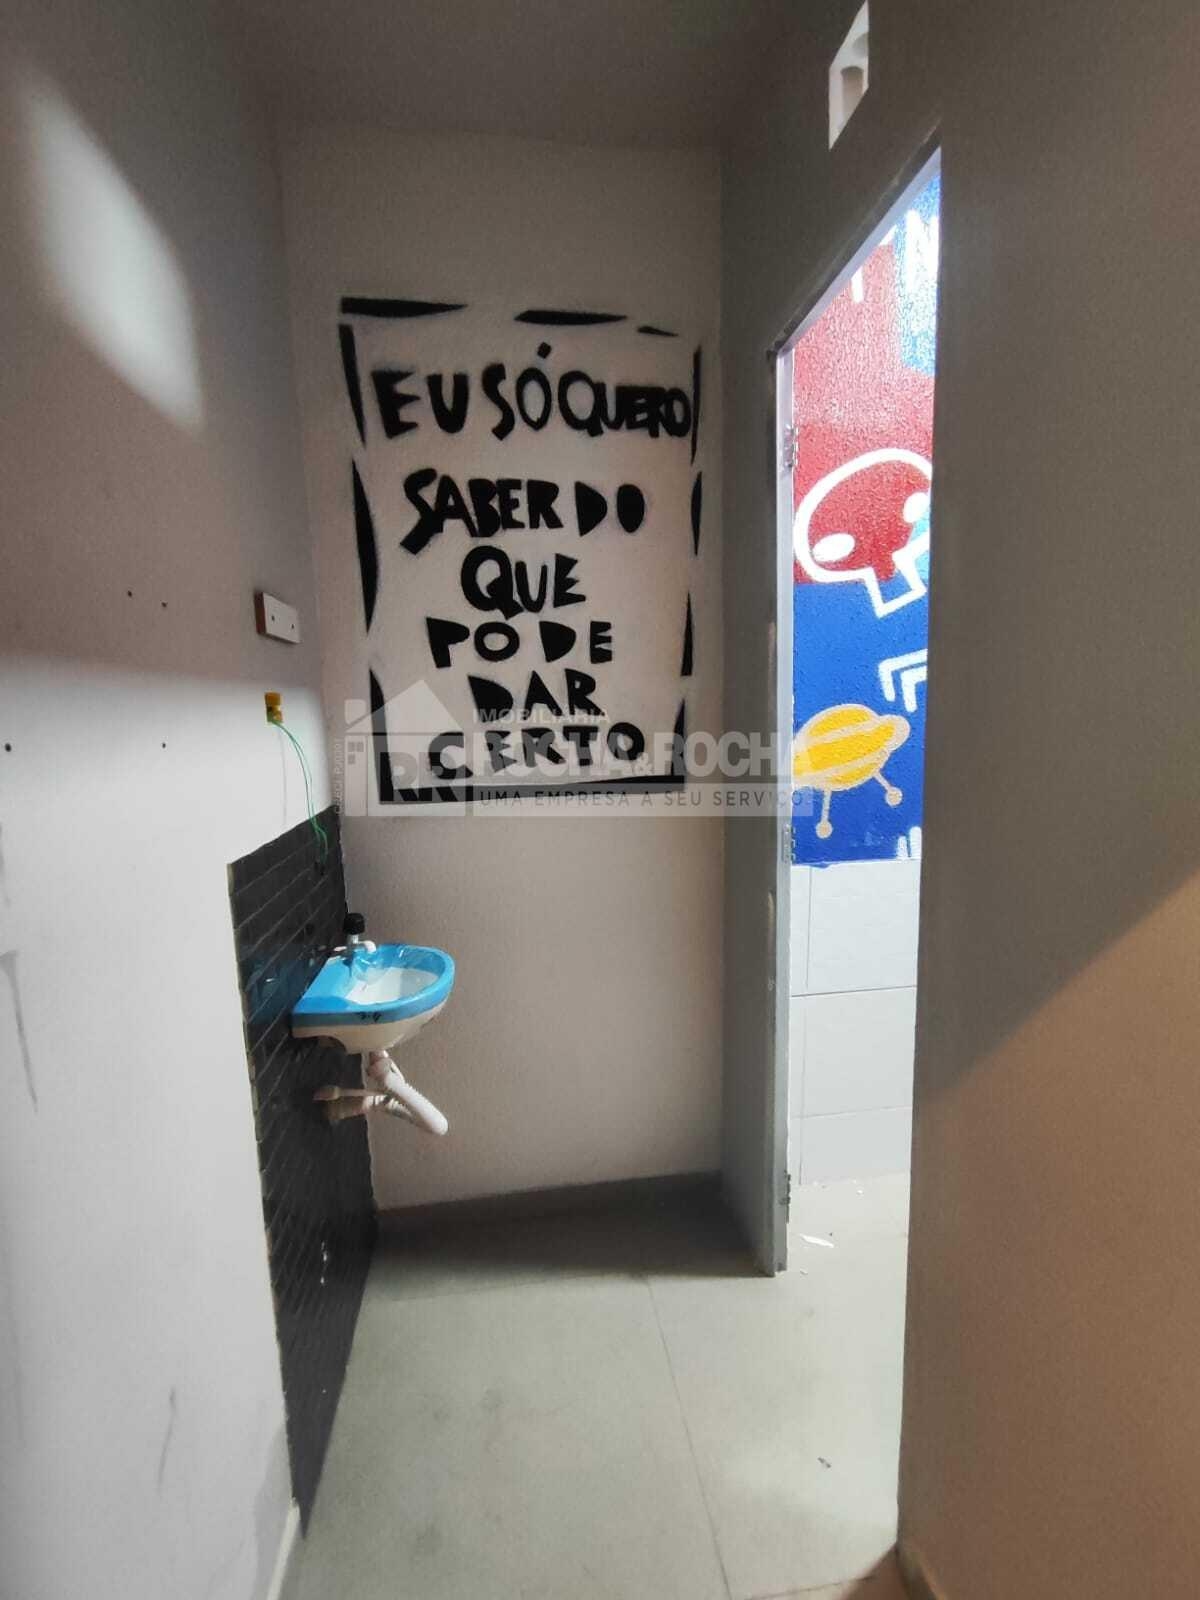 EU SÓ QUERO
SABER DO
QUE
PODE
DAR
CERTO
IMOBILIÁRIA
RR ROCHA&ROCHA
UMA EMPRESA A SEU SERVIÇO